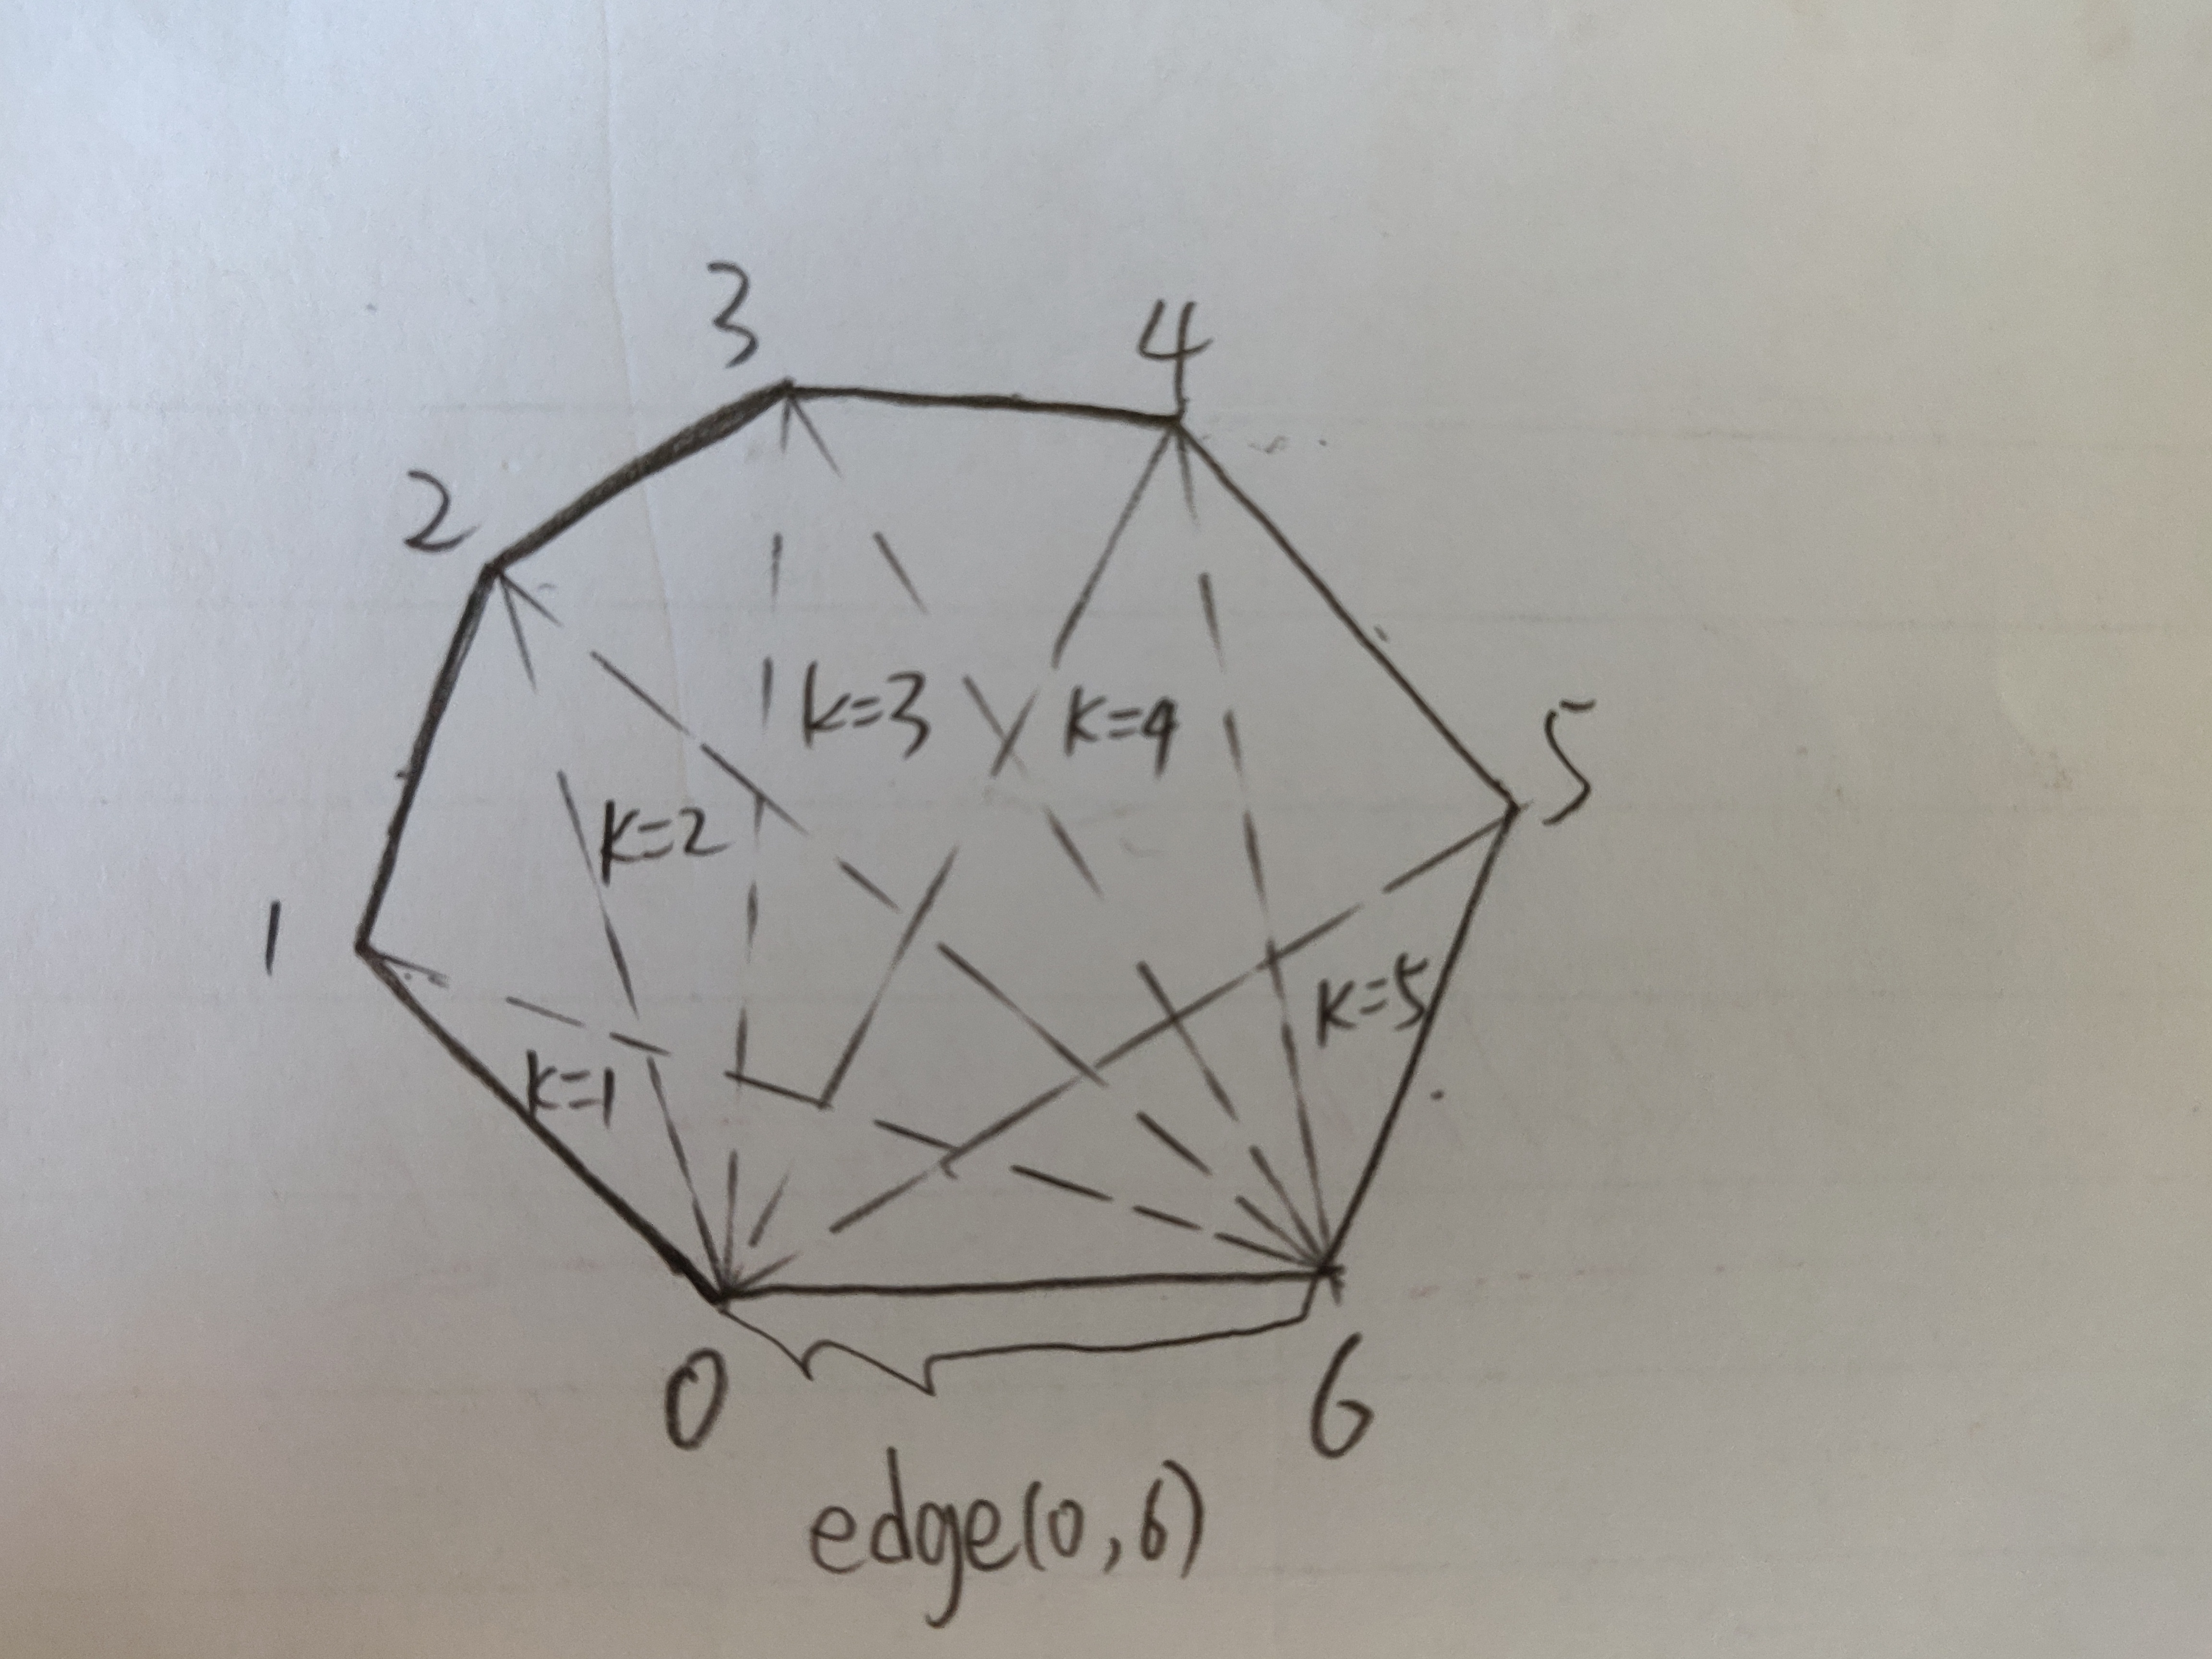 3
4
2
k=3
k=4
5
k=2
1
k=5
k=1
0
6
edge(0,6)